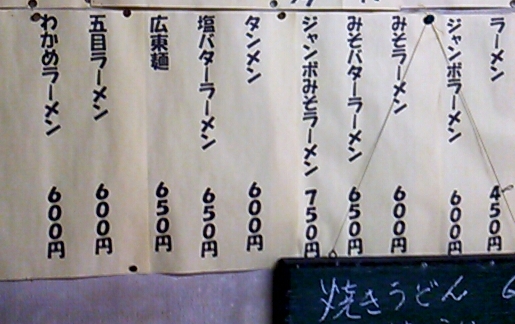 ラーメン 450円
ジャンボラーメン 600円
みそラーメン 600円
みそバターラーメン 650円
ジャンボみそラーメン 750円
タンメン 600円
塩バターラーメン 650円
広東麺 650円
五目ラーメン 600円
わかめラーメン 600円
焼きうどん